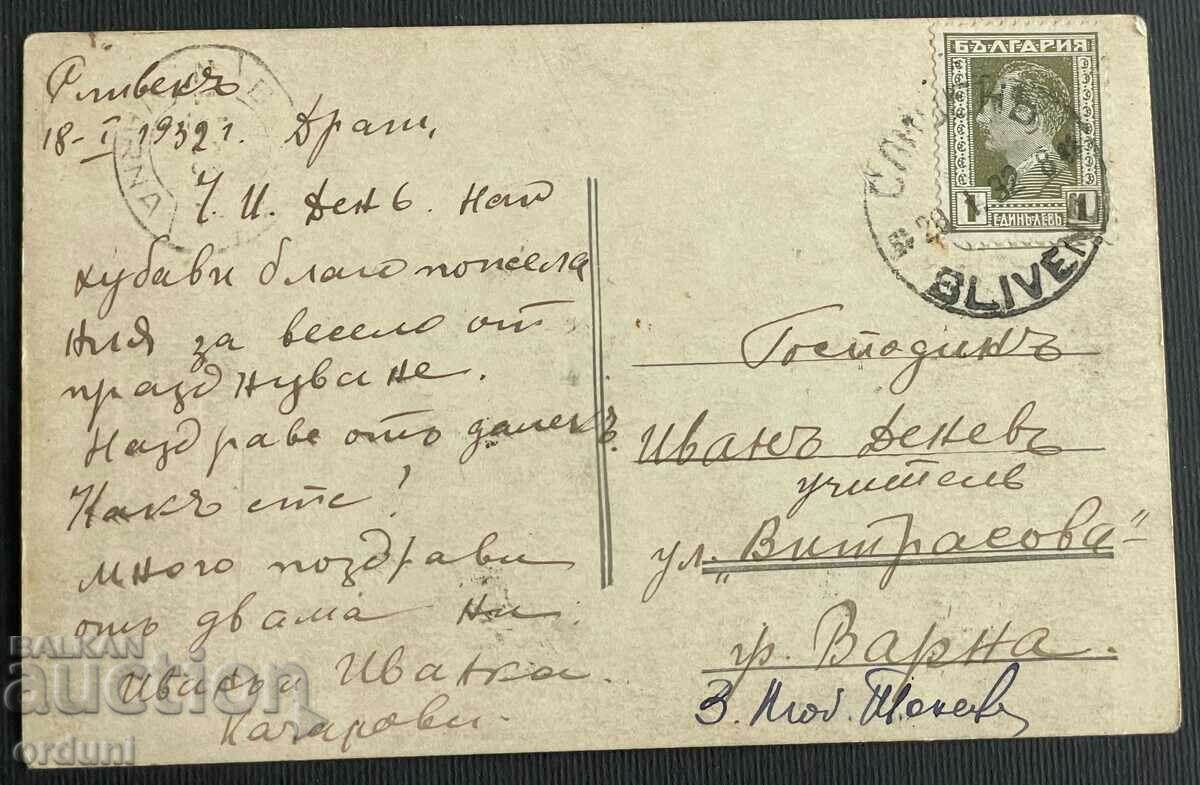 Сливенъ
18-I 1932 г. Драги,
Ч. И. День. Най
хубави благопожела
ния за весело от
празднуване.
Наздраве отъ далекъ.
Какъ сте!
Много поздрави
отъ двама ни.
Иванъ и Иванка
Качарови.
БЪЛГАРИЯ
1 ЕДИНЪ ЛЕВЪ 1
SLIVEN
Господинъ
Иванъ Деневъ
учитель
ул. "Витрасова"
гр. Варна.
VARNA
BALKAN
auction
orduni